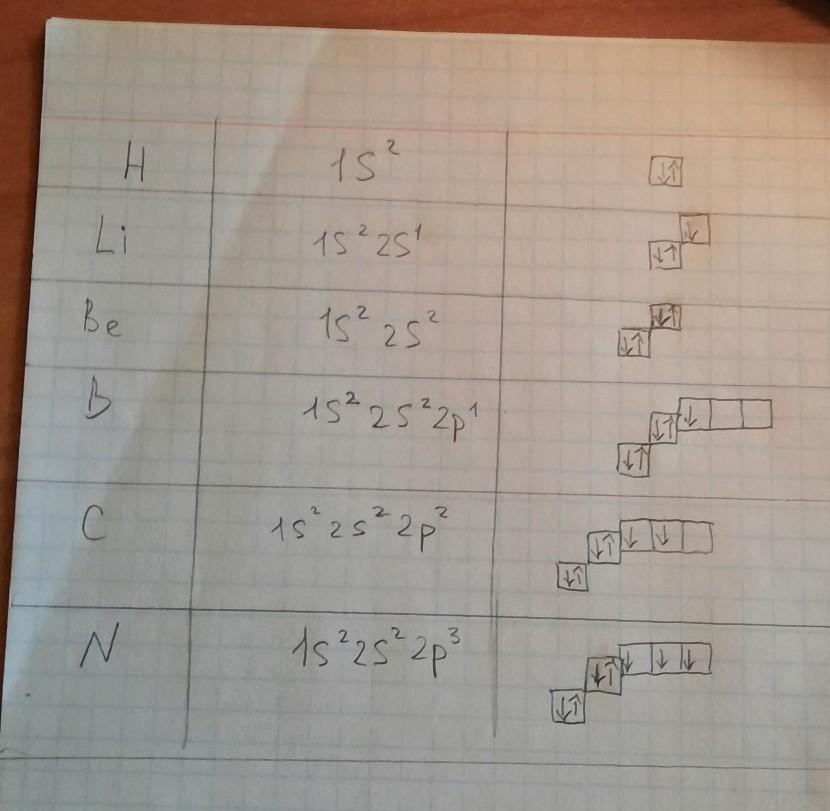 H 1s² ↓↑
Li 1s² 2s¹ ↓↑ ↓
Be 1s² 2s² ↓↑ ↓↑
B 1s² 2s² 2p¹ ↓↑ ↓↑ ↓
C 1s² 2s² 2p² ↓↑ ↓↑ ↓ ↓
N 1s² 2s² 2p³ ↓↑ ↓↑ ↓ ↓ ↓